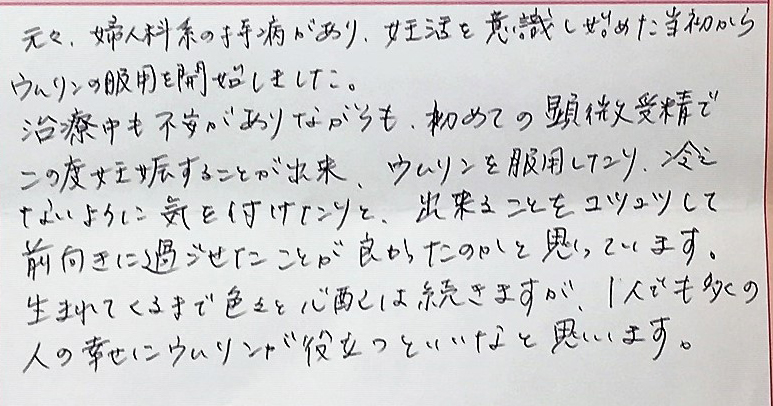 元々、婦人科系の持病があり、妊活を意識し始めた当初から
ウムリンの服用を開始しました。
治療中も不安がありながらも、初めての顕微受精で
この度妊娠することが出来、ウムリンを服用したり、冷え
ないように気を付けたりと、出来ることをコツコツして
前向きに過ごせたことが良かったのかと思っています。
生まれてくるまで色々と心配は続きますが、1人でも多くの
人の幸せにウムリンが役立つといいなと思います。